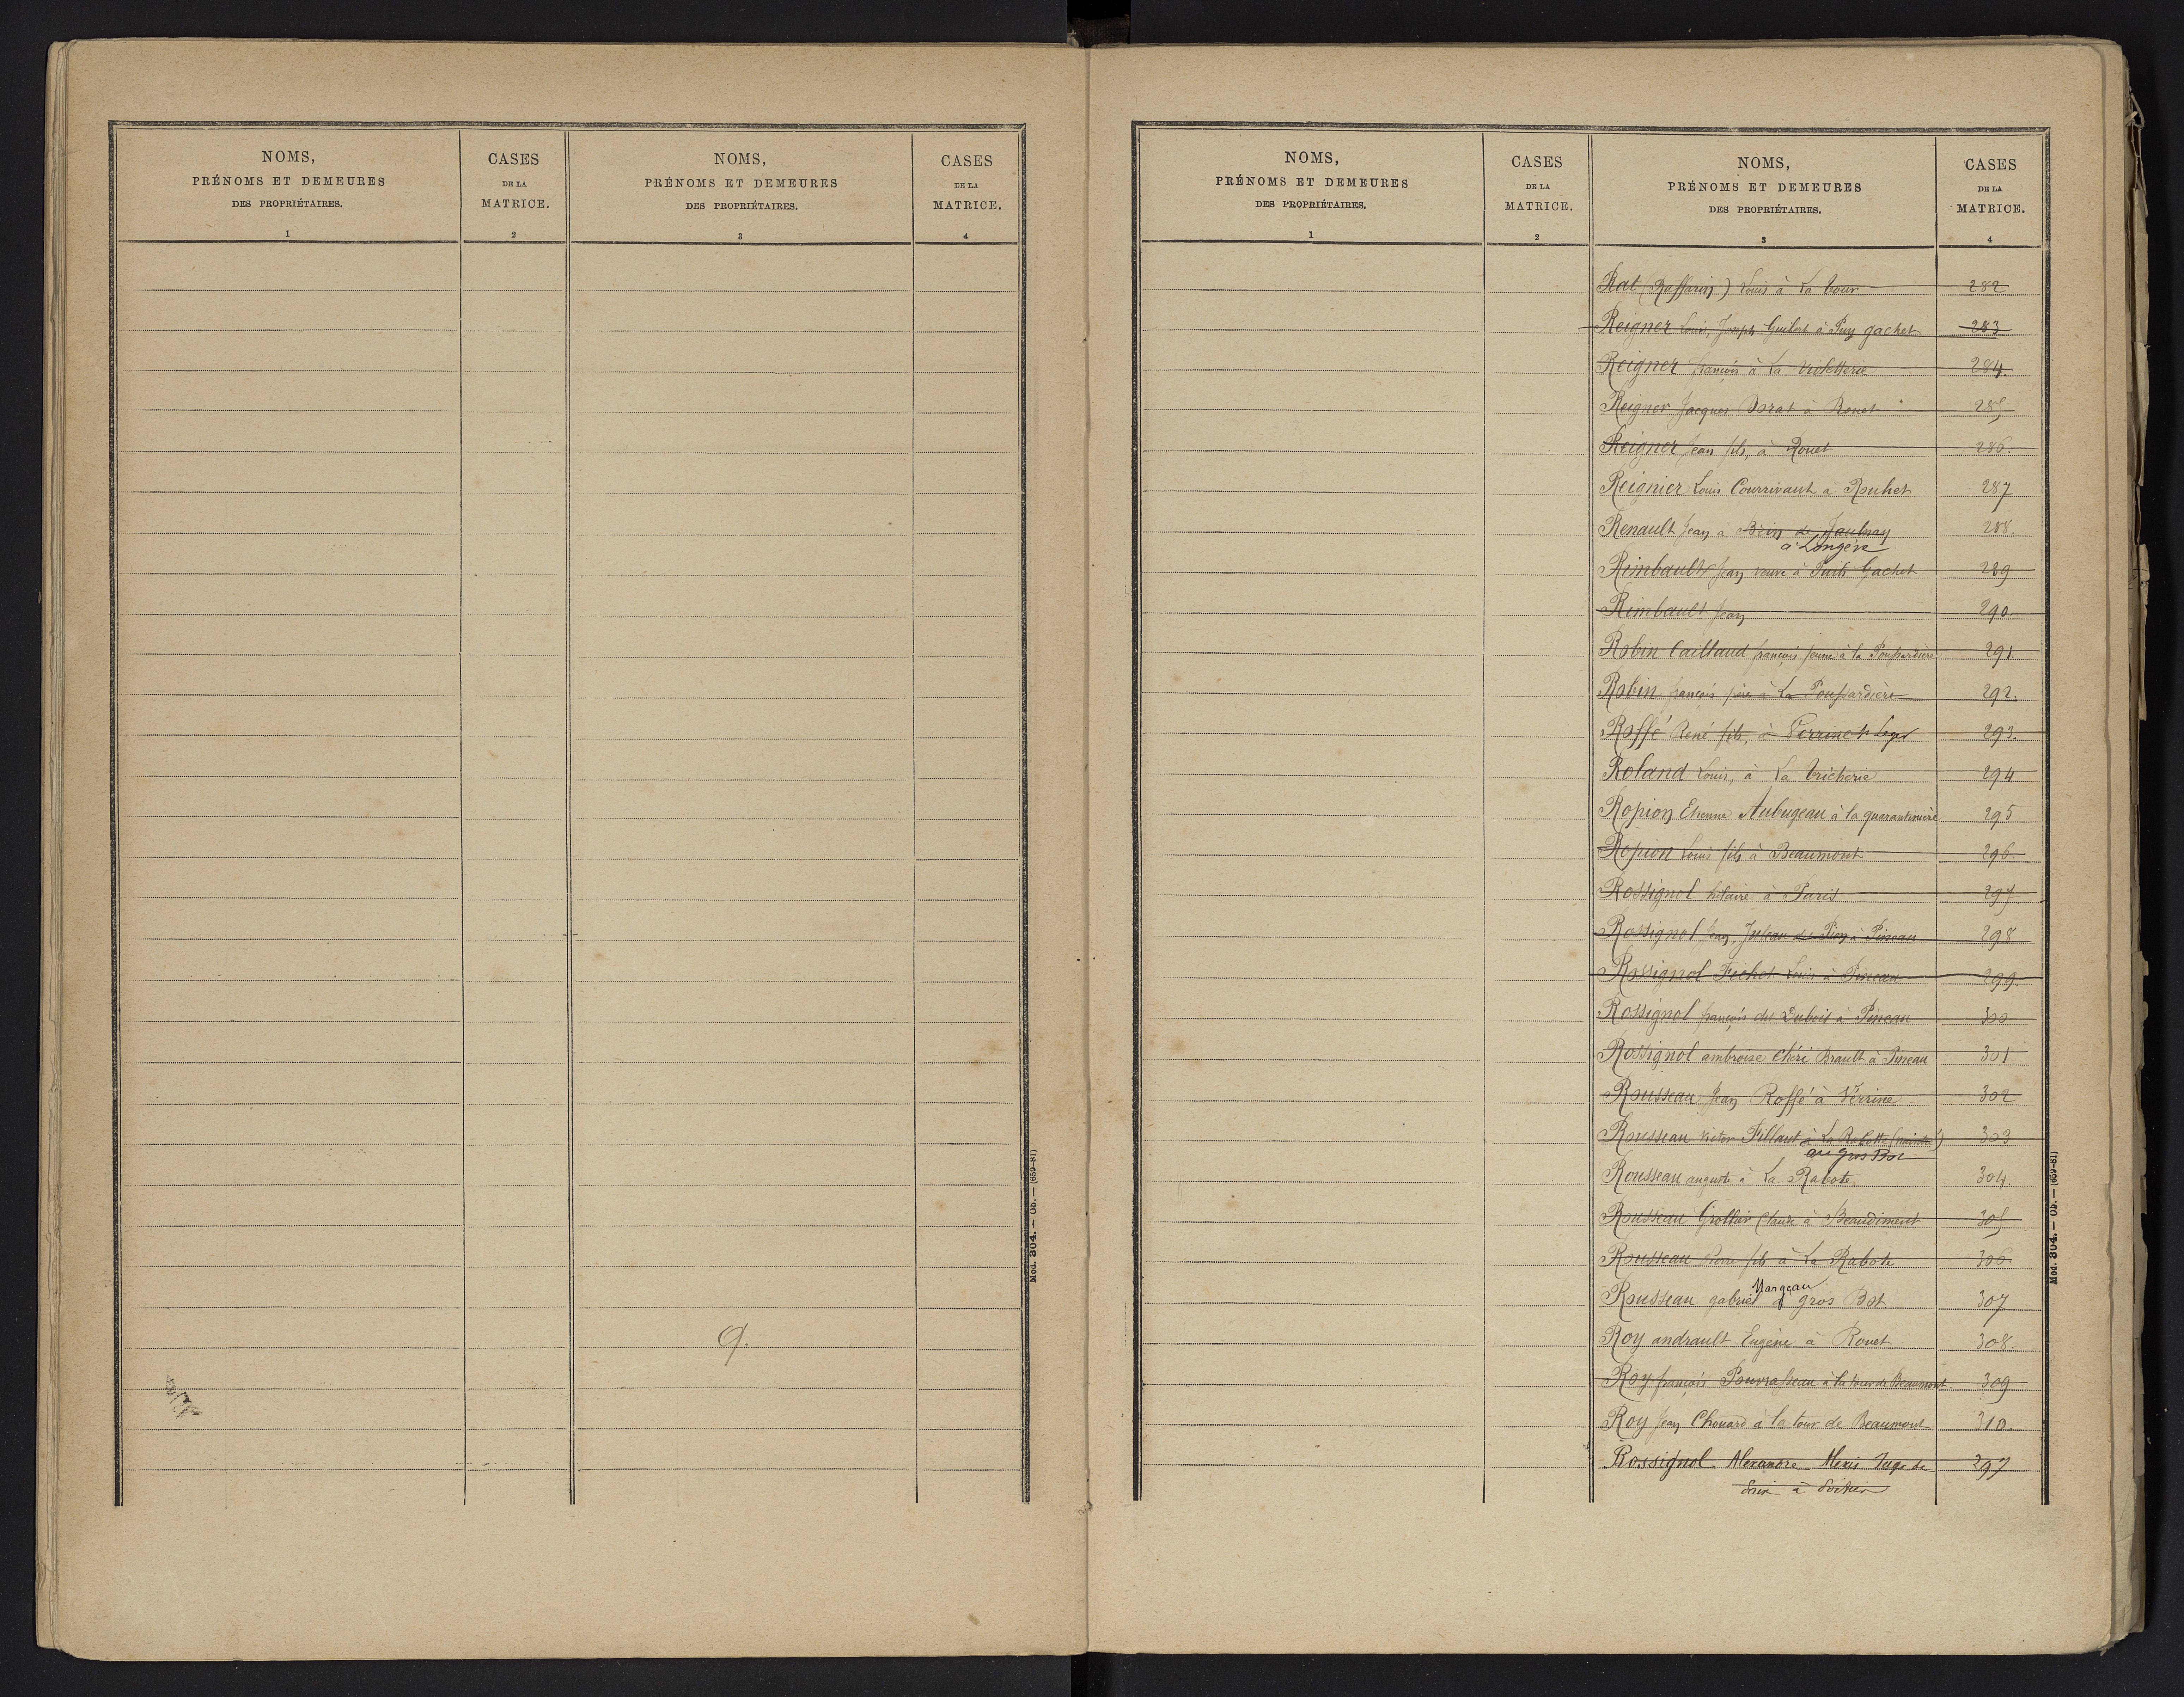 NOMS,
PRÉNOMS ET DEMEURES
DES PROPRIÉTAIRES.
1
CASES
DE LA
MATRICE.
2
NOMS,
PRÉNOMS ET DEMEURES
DES PROPRIÉTAIRES.
3
CASES
DE LA
MATRICE.
4
Q.
Mod. 304. — Ob. — (659-81)
NOMS,
PRÉNOMS ET DEMEURES
DES PROPRIÉTAIRES.
1
CASES
DE LA
MATRICE.
2
NOMS,
PRÉNOMS ET DEMEURES
DES PROPRIÉTAIRES.
3
CASES
DE LA
MATRICE.
4
Rat (Raffarin) Louis à La tour 282
Reigner Louis, Joseph Guilbert à Puy gachet 283
Reigner françois à La Violetterie 284
Reigner Jacques à Rouet 285
Reigner Jean fils, à Rouet 286.
Reignier Louis Courrivault à Rouhet 287
Renault Jean à de Jaulnay 288.
à Longève
Rimbault Jean veuve à Puits Gachet 289
Rimbault Jean 290.
Robin Caillaud françois jeune à la Poussardière 291.
Robin françois père à La Poussardière 292.
Roffé René fils, à Verrine St Léger 293.
Roland Louis, à La Tricherie 294
Ropion Etienne Aubugeau à la quarantinière 295
Ropion Louis fils à Beaumont 296.
Rossignol hilaire à Paris 297.
Rossignol Jean, Juteau de à Pineau 298
Rossignol Fichet Louis à Pineau 299.
Rossignol françois dit Dubois à Pineau 300
Rossignol ambroise Chéri Brault à Pineau 301
Rousseau Jean Roffé à Vérrine 302
Rousseau victor Fillaut à La Rabotte 303
au gros Bot
Rousseau auguste à La Rabote 304.
Rousseau Grollier Claude à Beaudiment 305
Rousseau Pierre fils à La Rabote 306
Mangeau
Rousseau gabriel à gros Bot 307
Roy andrault Eugène à Rouet 308.
Roy françois Pouvrasseau à la tour de Beaumont 309
Roy Jean Chouard à la tour de Beaumont 310.
Rossignol Alexandre Alexis Juge de 297
Paix à Poitiers
Mod. 304. — Ob. — (659-81)